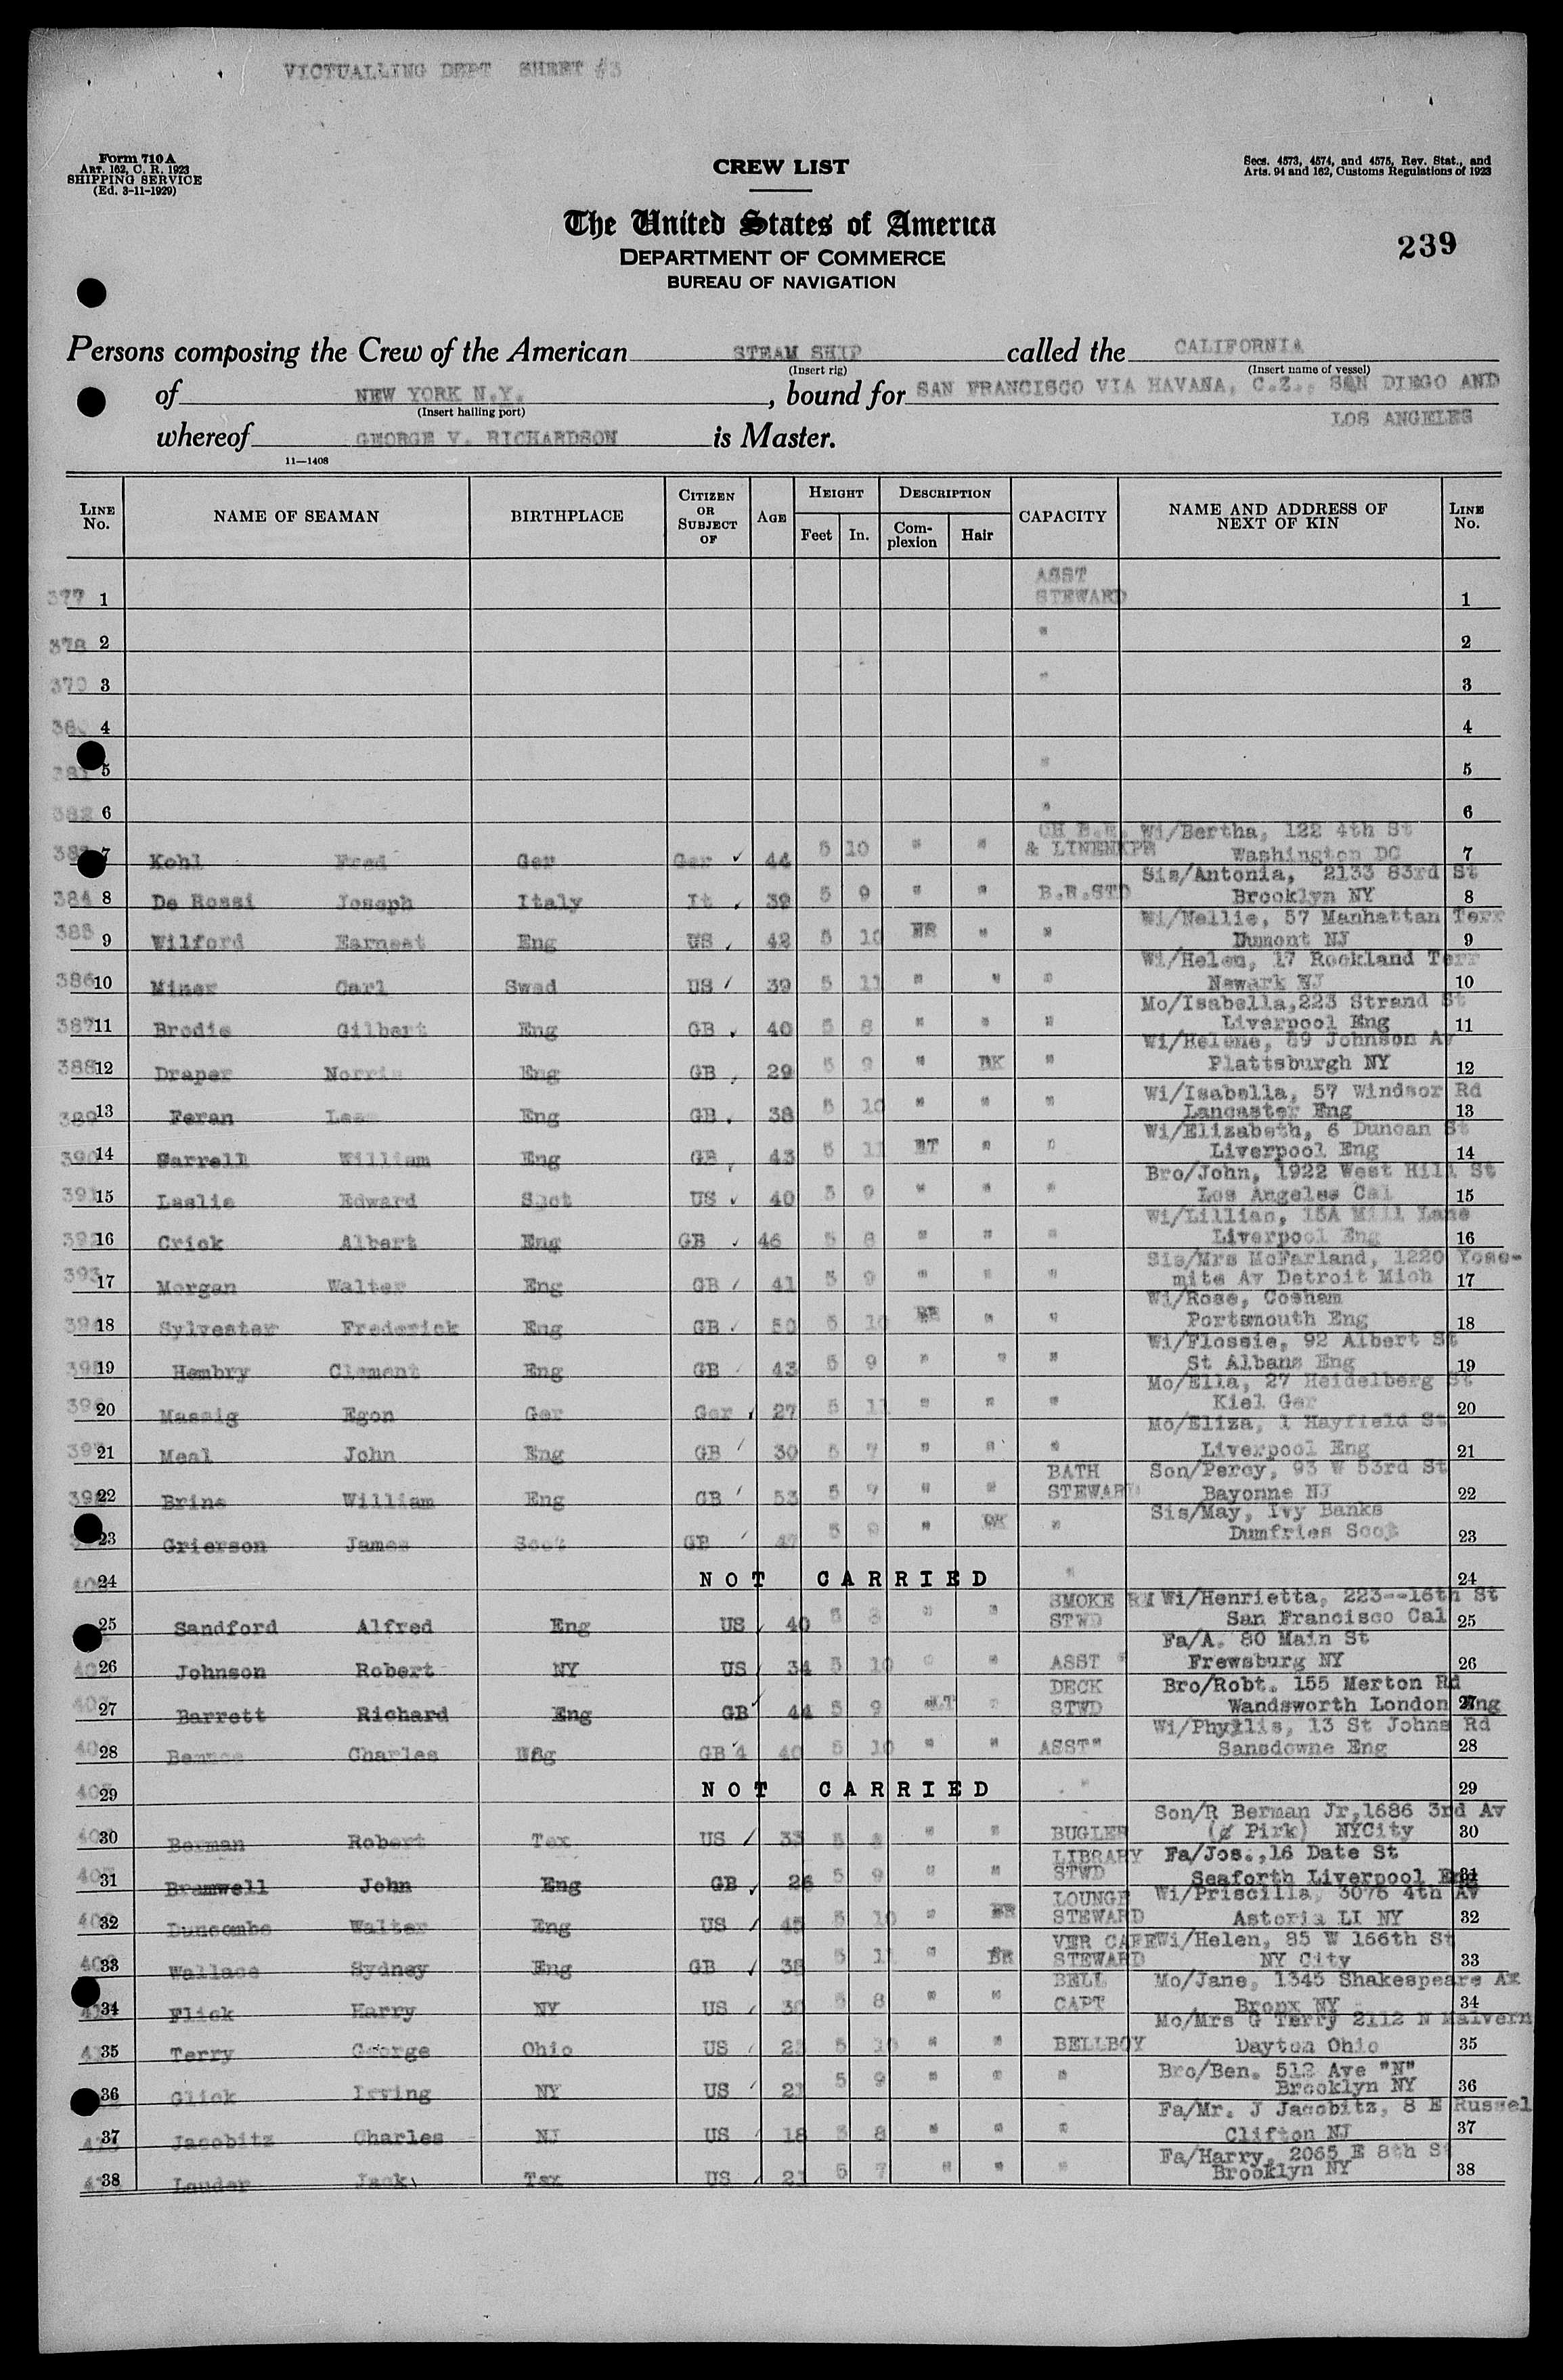 VICTUALLING DEPT SHEET #3
Form 710 A
ART. 162, C. R. 1923
SHIPPING SERVICE
(Ed. 3-11-1929)
CREW LIST
Secs. 4573, 4574, and 4575, Rev. Stat., and
Arts. 94 and 162, Customs Regulations of 1923
The United States of America
DEPARTMENT OF COMMERCE
BUREAU OF NAVIGATION
239
Persons composing the Crew of the American STEAM SHIP called the CALIFORNIA
(Insert rig) (Insert name of vessel)
of NEW YORK N.Y. , bound for SAN FRANCISCO VIA HAVANA, C.Z., SAN DIEGO AND
(Insert hailing port) LOS ANGELES
whereof GEORGE V. RICHARDSON is Master.
11—1408
LINE No. NAME OF SEAMAN BIRTHPLACE CITIZEN OR SUBJECT OF AGE HEIGHT Feet In. DESCRIPTION Complexion Hair CAPACITY NAME AND ADDRESS OF NEXT OF KIN LINE No.
377 1 ASST STEWARD 1
378 2 " 2
379 3 " 3
4 4
381 5 " 5
382 6 " 6
7 Kohl Fred Ger Ger ✓ 44 5 10 " " CH B.R. & LINENKPR Wi/Bertha, 122 4th St Washington DC 7
384 8 De Rossi Joseph Italy It ✓ 39 5 9 " " B.R.STD Sis/Antonia, 2133 83rd St Brooklyn NY 8
385 9 Wilford Earnest Eng US ✓ 42 5 10 " " Wi/Nellie, 57 Manhattan Terr Dumont NJ 9
386 10 Miner Carl Swed US ✓ 39 5 11 " " " Wi/Helen, 17 Rockland Terr Newark NJ 10
387 11 Brodie Gilbert Eng GB ✓ 40 5 8 " " " Mo/Isabella,223 Strand St Liverpool Eng 11
388 12 Draper Norris Eng GB ✓ 29 5 9 " DK " Wi/Helene, 89 Johnson Av Plattsburgh NY 12
389 13 Feran Lees Eng GB ✓ 38 5 10 " " " Wi/Isabella, 57 Windsor Rd Lancaster Eng 13
390 14 William Eng GB ✓ 43 5 11 LT " " Wi/Elizabeth, 6 Duncan St Liverpool Eng 14
391 15 Leslie Edward Scot US ✓ 40 5 9 " " " Bro/John, 1922 West Hill St Los Angeles Cal 15
392 16 Crick Albert Eng GB ✓ 46 5 8 " " " Wi/Lillian, 15A Mill Lane Liverpool Eng 16
393 17 Morgan Walter Eng GB ✓ 41 5 9 " " " Sis/Mrs McFarland, 1220 Yose- mite Av Detroit Mich 17
394 18 Sylvester Frederick Eng GB ✓ 50 5 10 " " Wi/Rose, Cosham Portsmouth Eng 18
395 19 Hembry Clement Eng GB ✓ 43 5 9 " " " Wi/Flossie, 92 Albert St St Albans Eng 19
396 20 Massig Egon Ger Ger ✓ 27 5 11 " " " Mo/Ella, 27 Heidelberg St Kiel Ger 20
397 21 Meal John Eng GB ✓ 30 5 7 " " " Mo/Eliza, 1 Hayfield St Liverpool Eng 21
398 22 Brine William Eng GB ✓ 53 5 9 " " BATH STEWARD Son/Percy, 93 W 53rd St Bayonne NJ 22
23 Grierson James Scot GB ✓ 47 5 9 " DK " Sis/May, Ivy Banks Dumfries Scot 23
24 NOT CARRIED " 24
25 Sandford Alfred Eng US ✓ 40 5 8 " " SMOKE RM STWD Wi/Henrietta, 223--16th St San Francisco Cal 25
26 Johnson Robert NY US ✓ 34 5 10 " " ASST " Fa/A. 80 Main St Frewsburg NY 26
27 Barrett Richard Eng GB ✓ 44 5 9 LT " DECK STWD Bro/Robt. 155 Merton Rd Wandsworth London Eng 27
28 Charles Eng GB ✓ 40 5 10 " " ASST" Wi/Phyllis, 13 St Johns Rd Sansdowne Eng 28
29 NOT CARRIED " 29
30 Berman Robert Tex US ✓ 33 5 8 " " BUGLER Son/R Berman Jr,1686 3rd Av (% Pirk) NYCity 30
31 Bramwell John Eng GB ✓ 26 5 9 " " LIBRARY STWD Fa/Jos.,16 Date St Seaforth Liverpool Eng 31
32 Duncombe Walter Eng US ✓ 45 5 10 " BR LOUNGE STEWARD Wi/Priscilla, 3076 4th Av Astoria LI NY 32
33 Wallace Sydney Eng GB ✓ 38 5 11 " BR VER CAFE STEWARD Wi/Helen, 85 W 166th St NY City 33
34 Flick Harry NY US ✓ 36 5 8 " " BELL CAPT Mo/Jane, 1345 Shakespeare Av Bronx NY 34
35 Terry George Ohio US ✓ 23 5 10 " " BELLBOY Mo/Mrs G Terry 2112 N Malvern Dayton Ohio 35
36 Glick Irving NY US ✓ 21 5 9 " " " Bro/Ben. 512 Ave "N" Brooklyn NY 36
37 Jacobitz Charles NJ US ✓ 18 5 8 " " " Fa/Mr. J Jacobitz, 8 E Russel Clifton NJ 37
38 Lauder Jack Tex US ✓ 21 5 7 " " " Fa/Harry, 2065 E 8th St Brooklyn NY 38